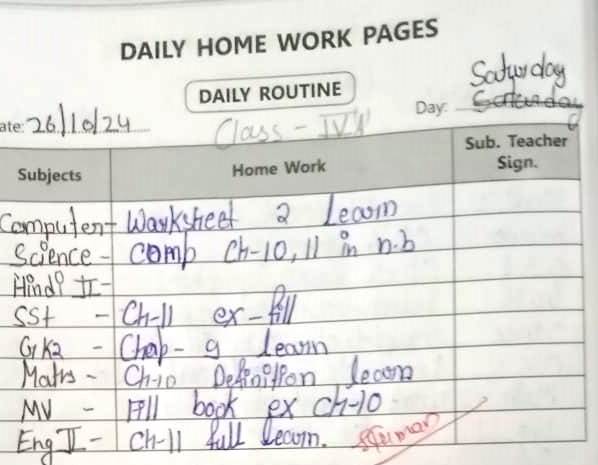 DAILY HOME WORK PAGES
DAILY ROUTINE
Saturday
ate: 26/10/24 Day: Saturday
Class - IV 'A'
Subjects Home Work Sub. Teacher Sign.
Computer - Worksheet 2 learn
Science - comp Ch-10, 11 in n.b
Hindi II -
SSt - Ch-11 ex - fill
G.K - Chap - 9 learn
Maths - Ch-10 Definition learn
MV - Fill book ex ch-10.
Eng II - Ch-11 full learn.